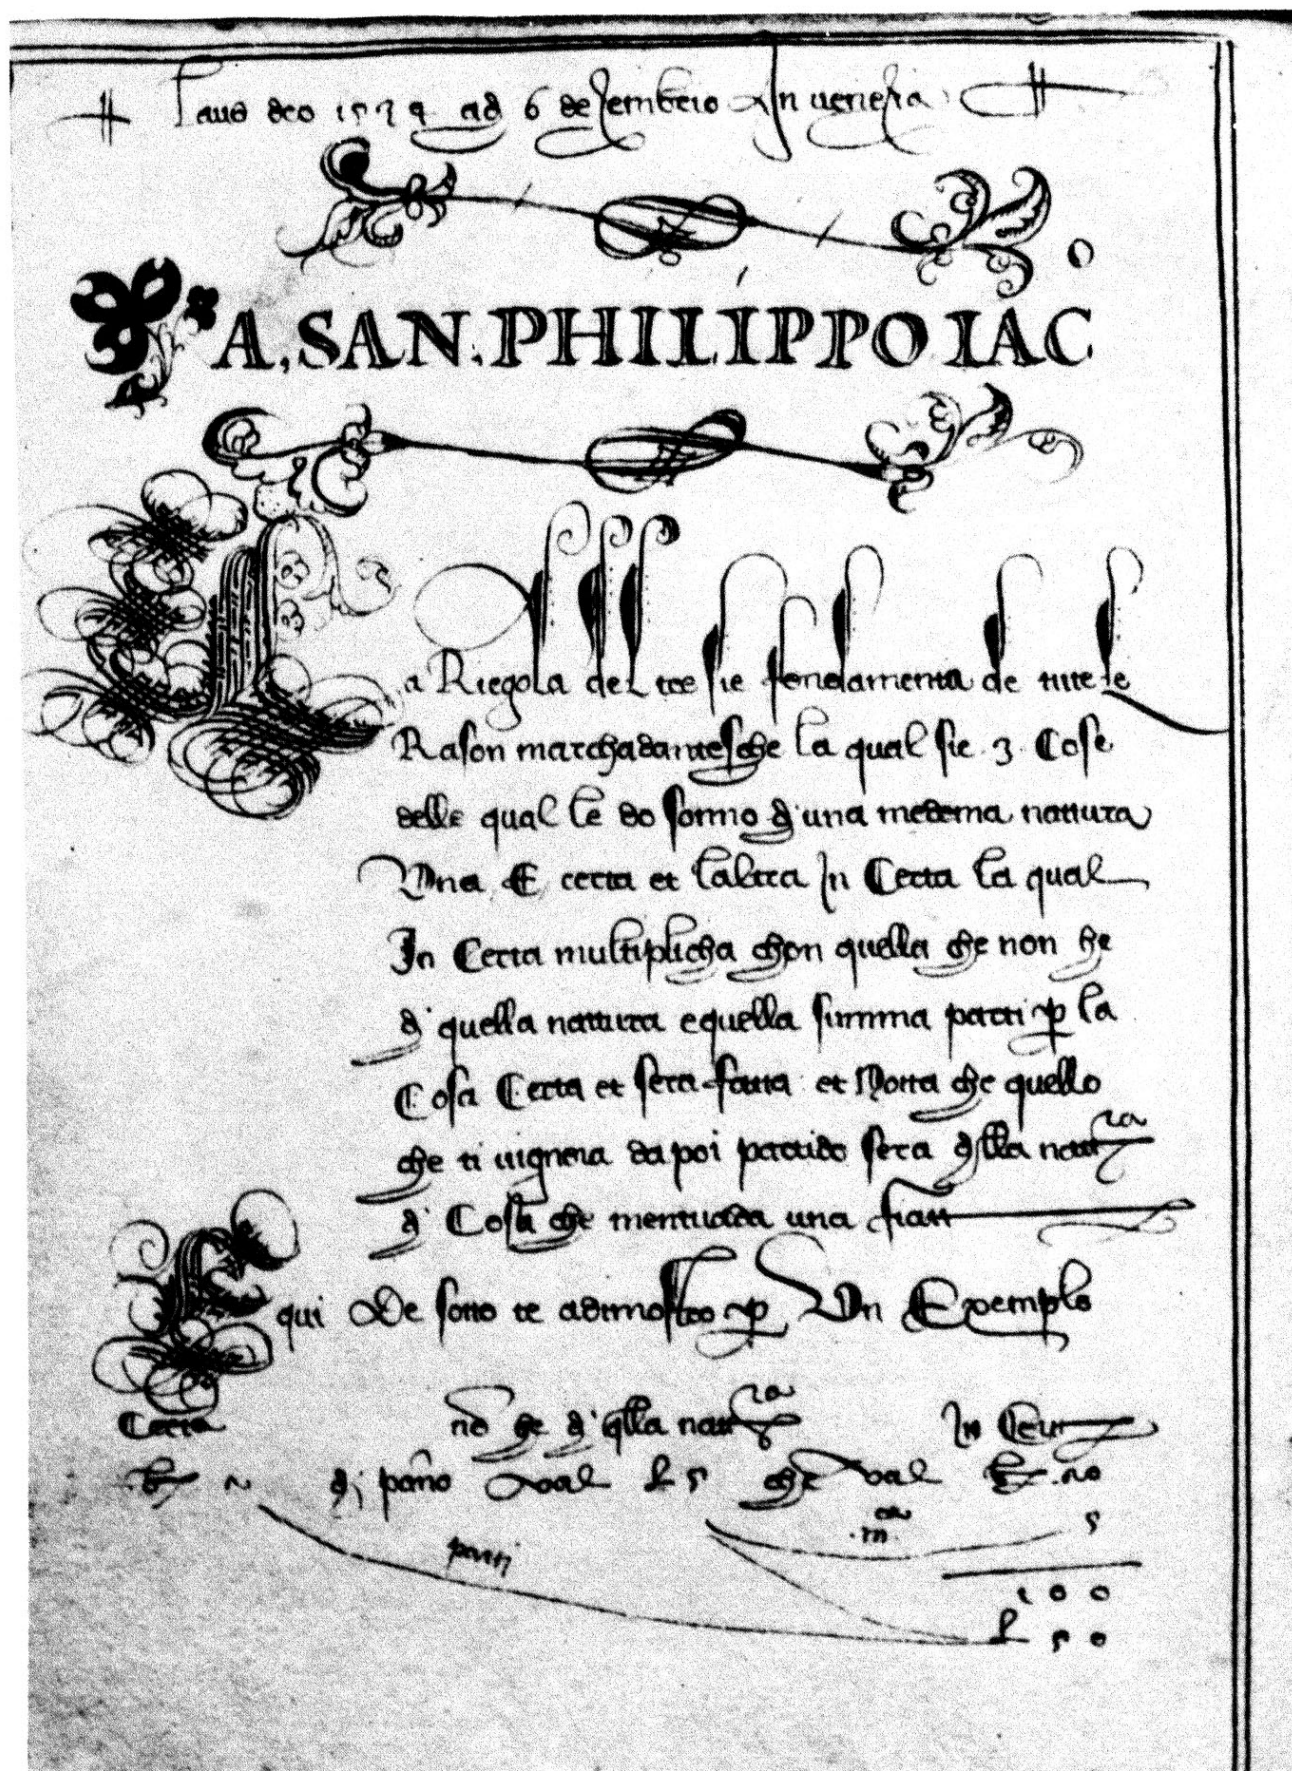 Laus deo 1529 ad 6 dezembrio In venezia
A. SAN. PHILIPPO IAC͘O
La Riegola del tre sie fondamenta de tute le
Rason marchadantesche la qual sie 3 Cose
delle qual le do sonno d'una medema nattura
Vna E certa et laltra In Certa la qual
In Certa multiplicha chon quella che non he
d'quella nattura equella summa parti ꝑ la
Cosa Certa et sera fatta et Notta che quello
che ti vignera dapoi partido sera dlla nattra
d' Cosa che mentuada una fiatt
E qui De sotto te adimostro ꝑ Vn Exemplo
Certa nō he d'qlla nattra In Cert
2 di pāno val L 5 che val 20
ca
.m. 5
parti
100
L 50